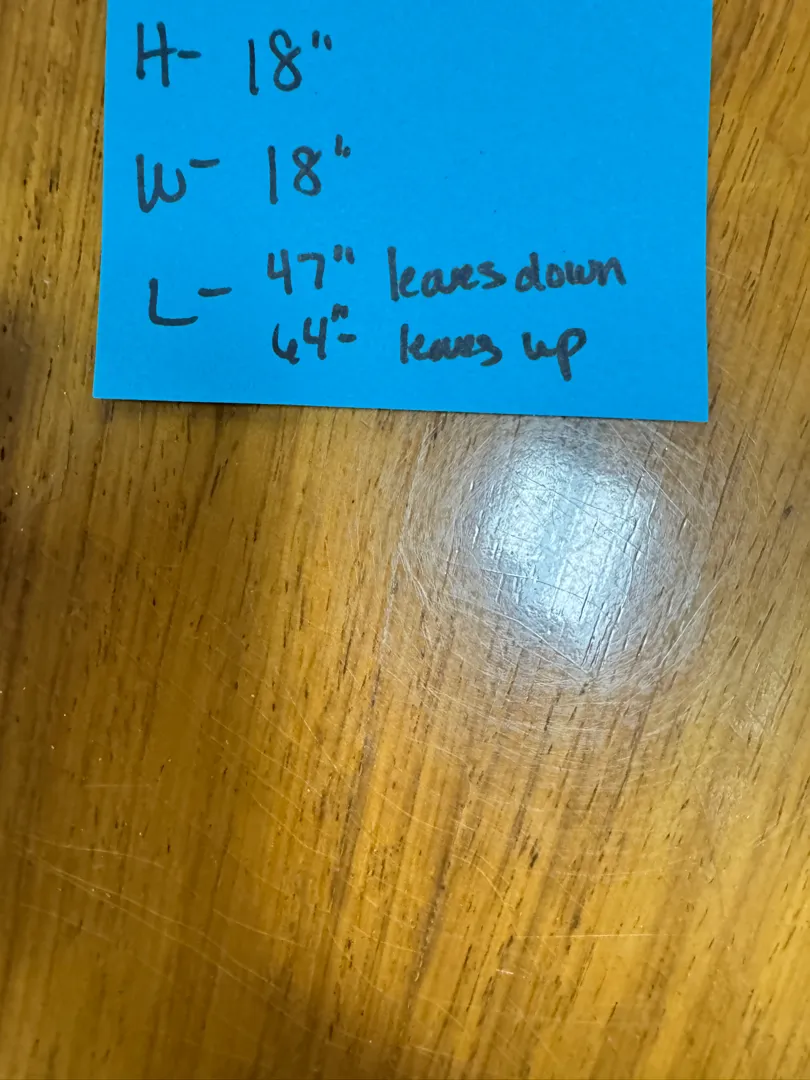 H- 18"
W- 18"
L- 47" leaves down
64"- leaves up